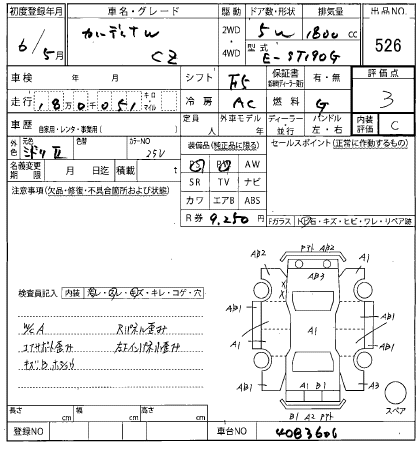 初度登録年月 車名・グレード 駆動 ドア数・形状 排気量 出品NO.
6/5月 カルディナW CZ 2WD 4WD 5W 1800cc 526
型式 E-ST190G
車検 年 月 シフト F5 保証書 有・無 評価点
走行 180051 キロ マイル 冷房 AC 燃料 G 3
車歴 自家用・レンタ・事業用( ) 定員 人 外車モデル 年 ディーラー・並行 ハンドル 左・右 内装評価 C
外色 元色 ミドリII 色替 カラーNO 25V 装備品(純正品に限る) セールスポイント(正常に作動するもの)
名義変更期限 月 日迄 積載 t PS PW AW
SR TV ナビ
注意事項(欠品・修復・不具合箇所および状態) カワ エアB ABS
R券 9,250円 Fガラス 石・キズ・ヒビ・ワレ・リペア跡
AB2 AB2 A1
AB3
AB1 A1 AB1
AB1 AB1
AB2 A1 B1 A3
B1 A2
スペア
検査員記入 内装 キレ・コゲ・穴
W/C A
コアサポート歪み
長さ cm 幅 cm 高さ cm
登録NO 車台NO